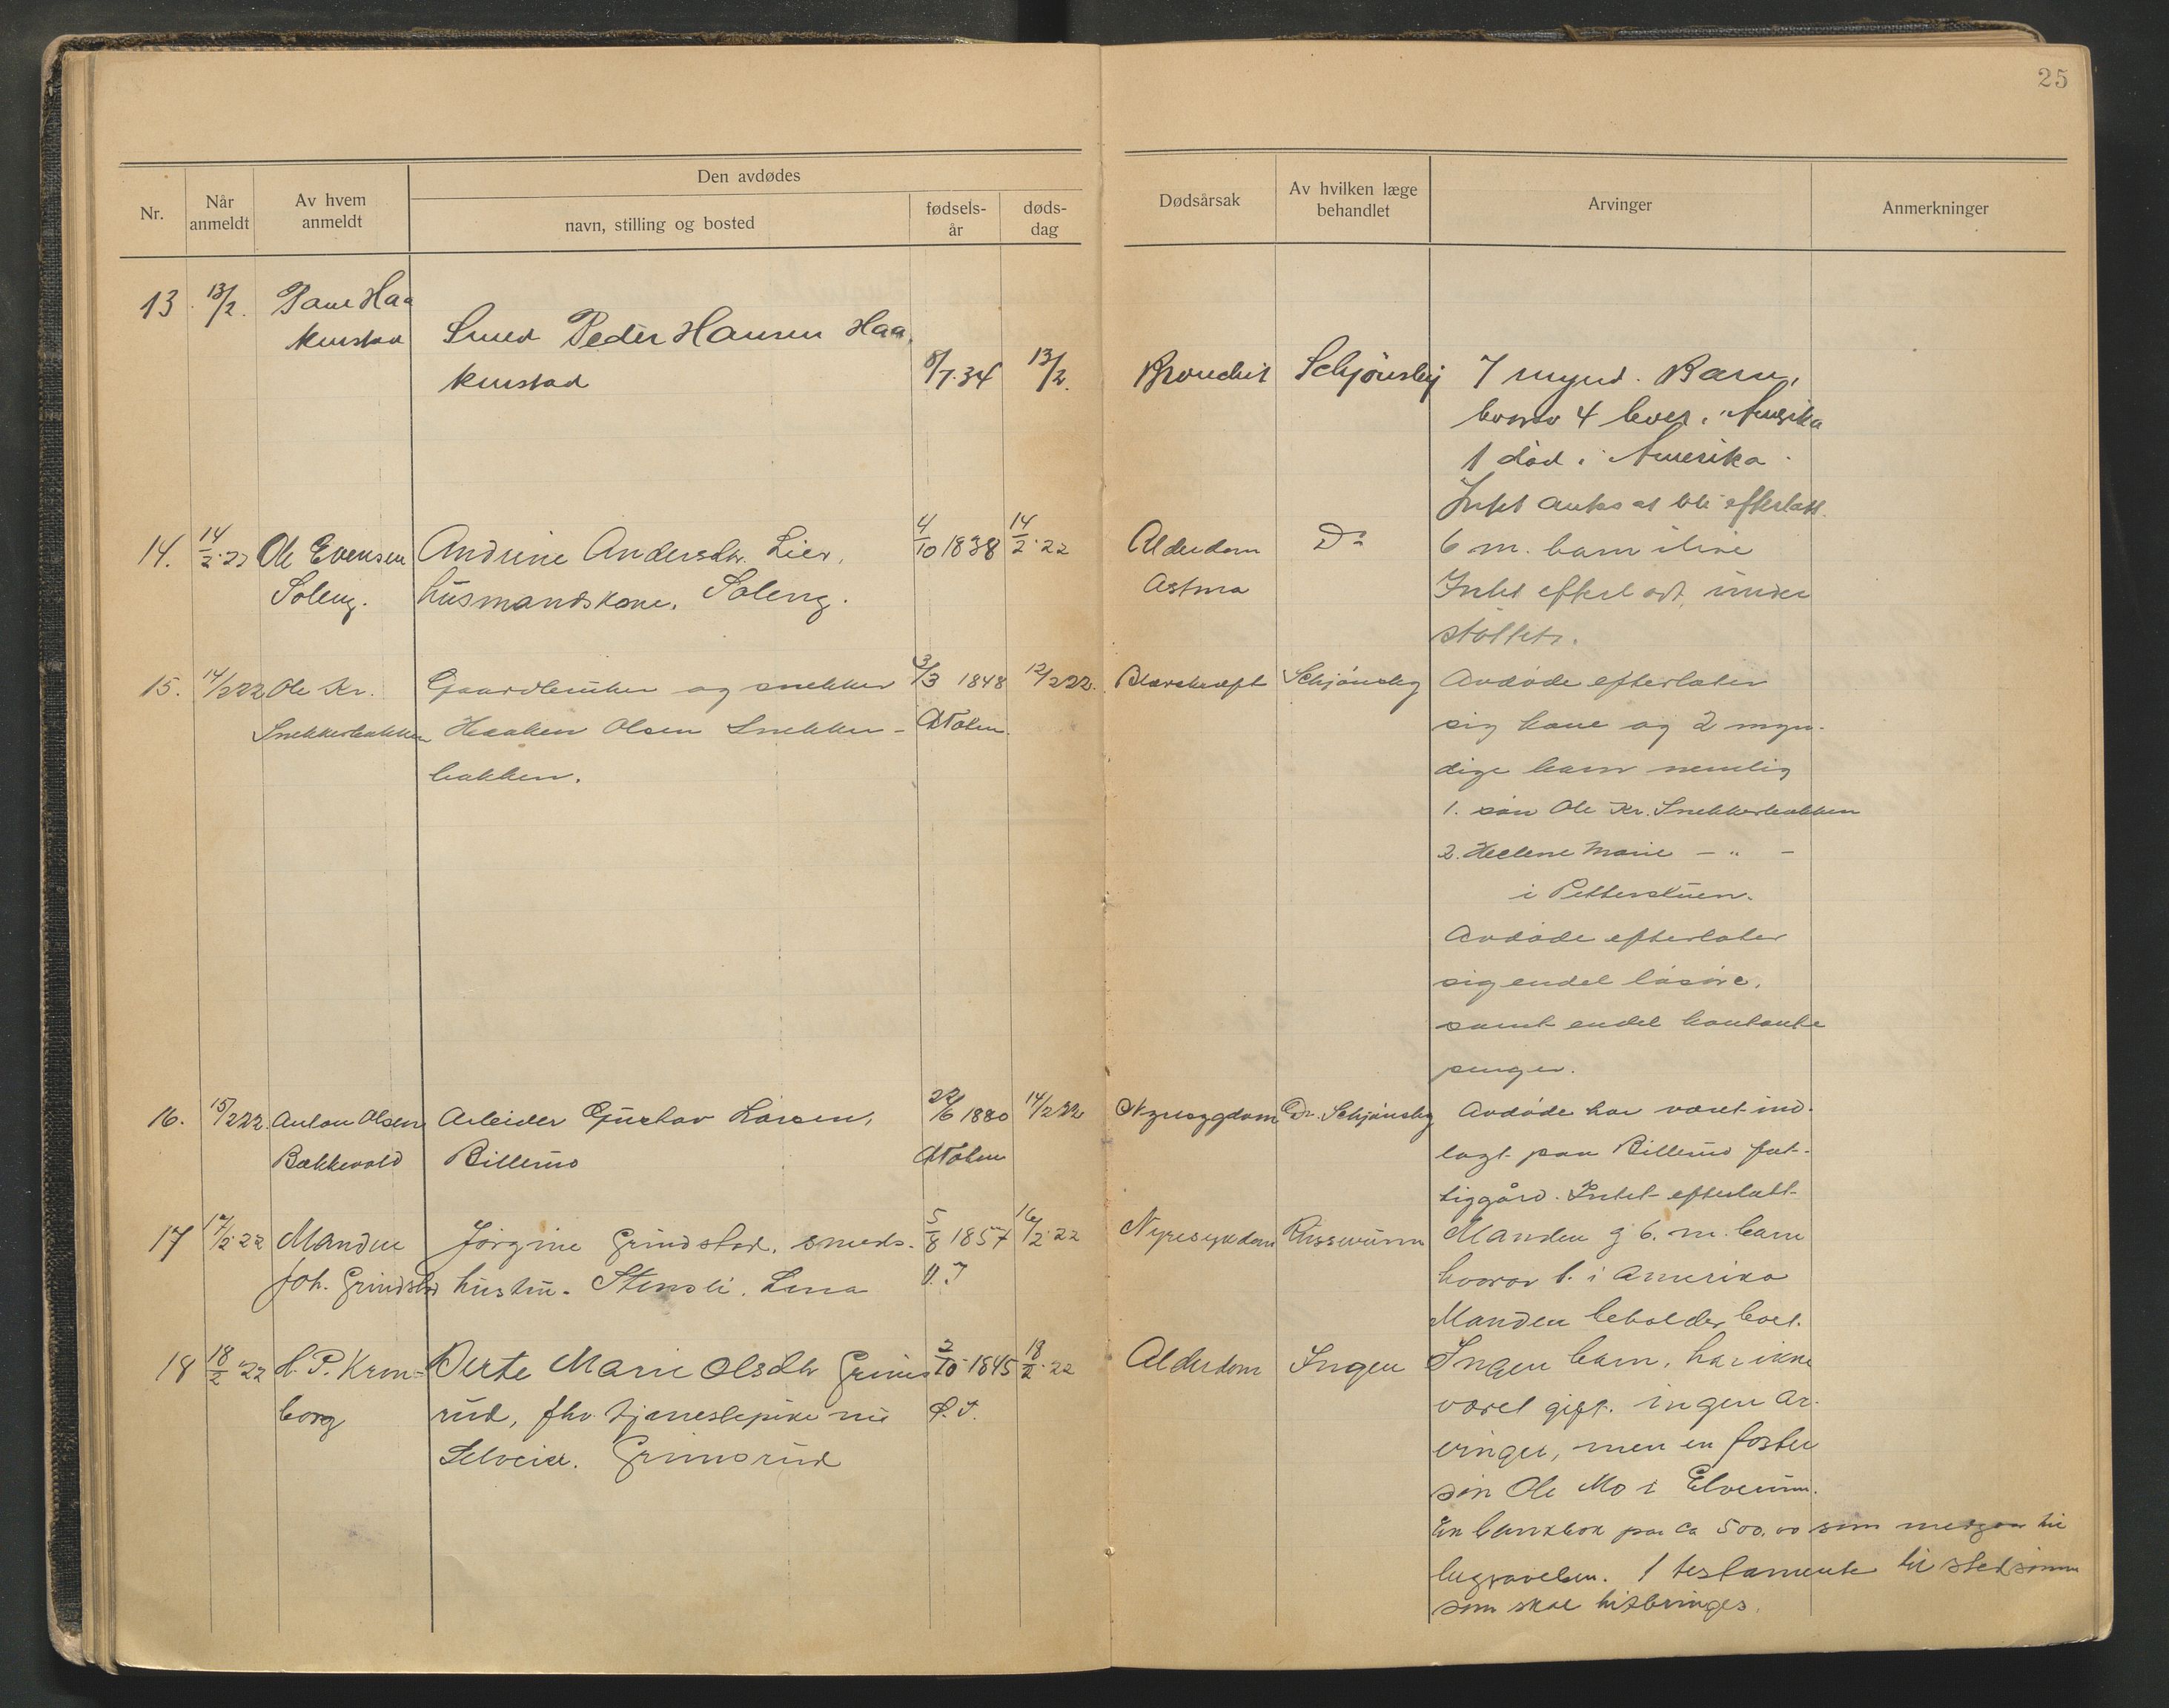 25
Nr.
Når anmeldt
Av hvem anmeldt
Den avdødes
navn, stilling og bosted
fødsels-
år
døds-
dag
Dødsårsak
Av hvilken læge
behandlet
Arvinger
Anmerkninger
13 13/2. Haa
kenstad
Smed Peder Hansen Haa
kenstad
8/7.34 13/2.
Bronchit Schjønsby
7 mynd. Barn,
hvorav 4 lever i Amerika
1 død i Amerika
Intet at bli efterlatt.
14. 14/2.22 Ole Evensen
Soleng.
Andrine Andersdtr. Lier,
husmandskone, Soleng.
4/10 1838 14/2.22
Alderdom
Astma
Do
6 m. barn ilive
Intet efterladt, under
støttet.
15. 14/2 22 Ole Kr.
Snekkerbakken
Gaardbruker og snekker
Haaken Olsen Snekker-
bakken.
3/3 1848
Ø Toten.
12/2 22.
Blærekræft Schjønsby
Avdøde efterlater
sig kone og 2 myn-
dige barn nemlig
1. søn Ole Kr. Snekkerbakken
2. Helene Marie - " -
i Petterstuen.
Avdøde efterlater
sig endel løsøre,
samt endel kontante
penger.
16. 15/2 22. Anton Olsen
Bækkevold
Arbeider Gustav Larsen,
Billerud
22/6 1880
Ø Toten
14/2 22
Nyresygdom Dr. Schjønsby
Avdøde har været ind-
lagt paa Billerud fat-
tiggård. Intet efterlatt.
17 17/2.22 Manden
Joh. Grindstad
Jørgine Grindstad, smeds-
hustru. Stensli. Lena
5/8 1857
V. T
16/2.22
Nyresykdom
Manden g 6. m. barn
hvorav 1. i Amerika
Manden beholder boet.
18 18/2.22 H. P. Kron-
borg
Berte Marie Olsdtr Grims
rud, fhv. tjenestepike nu
Selveier. Grimsrud
2/10 1845
Ø. T.
18/2.22
Alderdom Ingen
Ingen barn, har ikke
været gift. ingen ar-
vinger, men en foster
søn Ole Mo i Elverum.
En bankbok paa ca 500.00 som medgaar til
begravelsen. 1 testamente til stedsønn
som skal hitbringes.